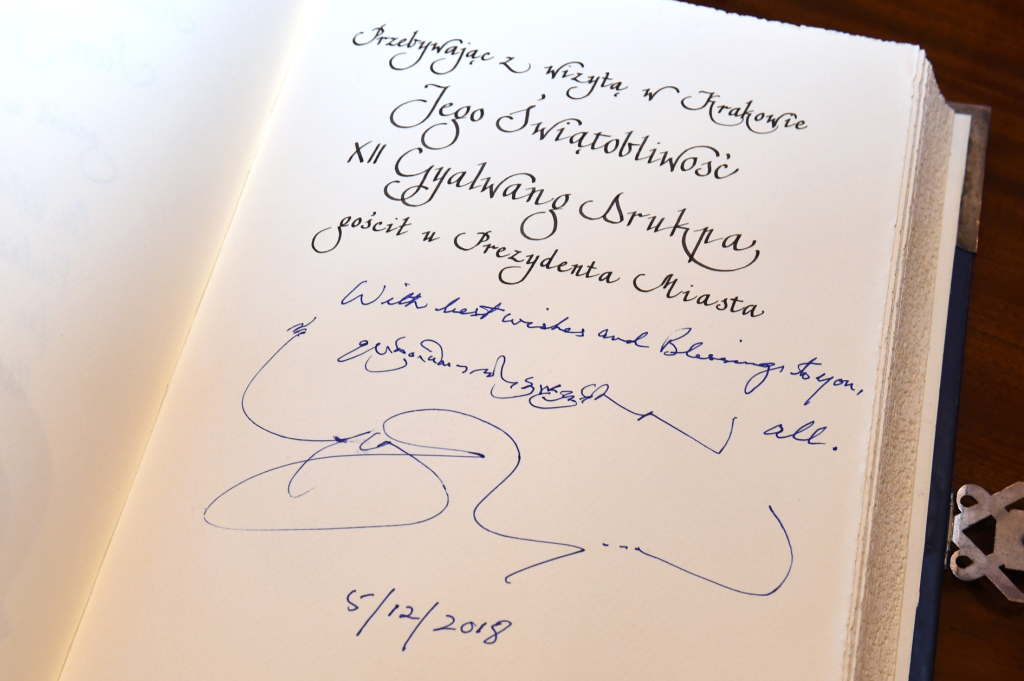 Przebywając z wizytą w Krakowie
Jego Świątobliwość
XII Gyalwang Drukpa,
gościł u Prezydenta Miasta
With best wishes and Blessings to you,
all.
5/12/2018